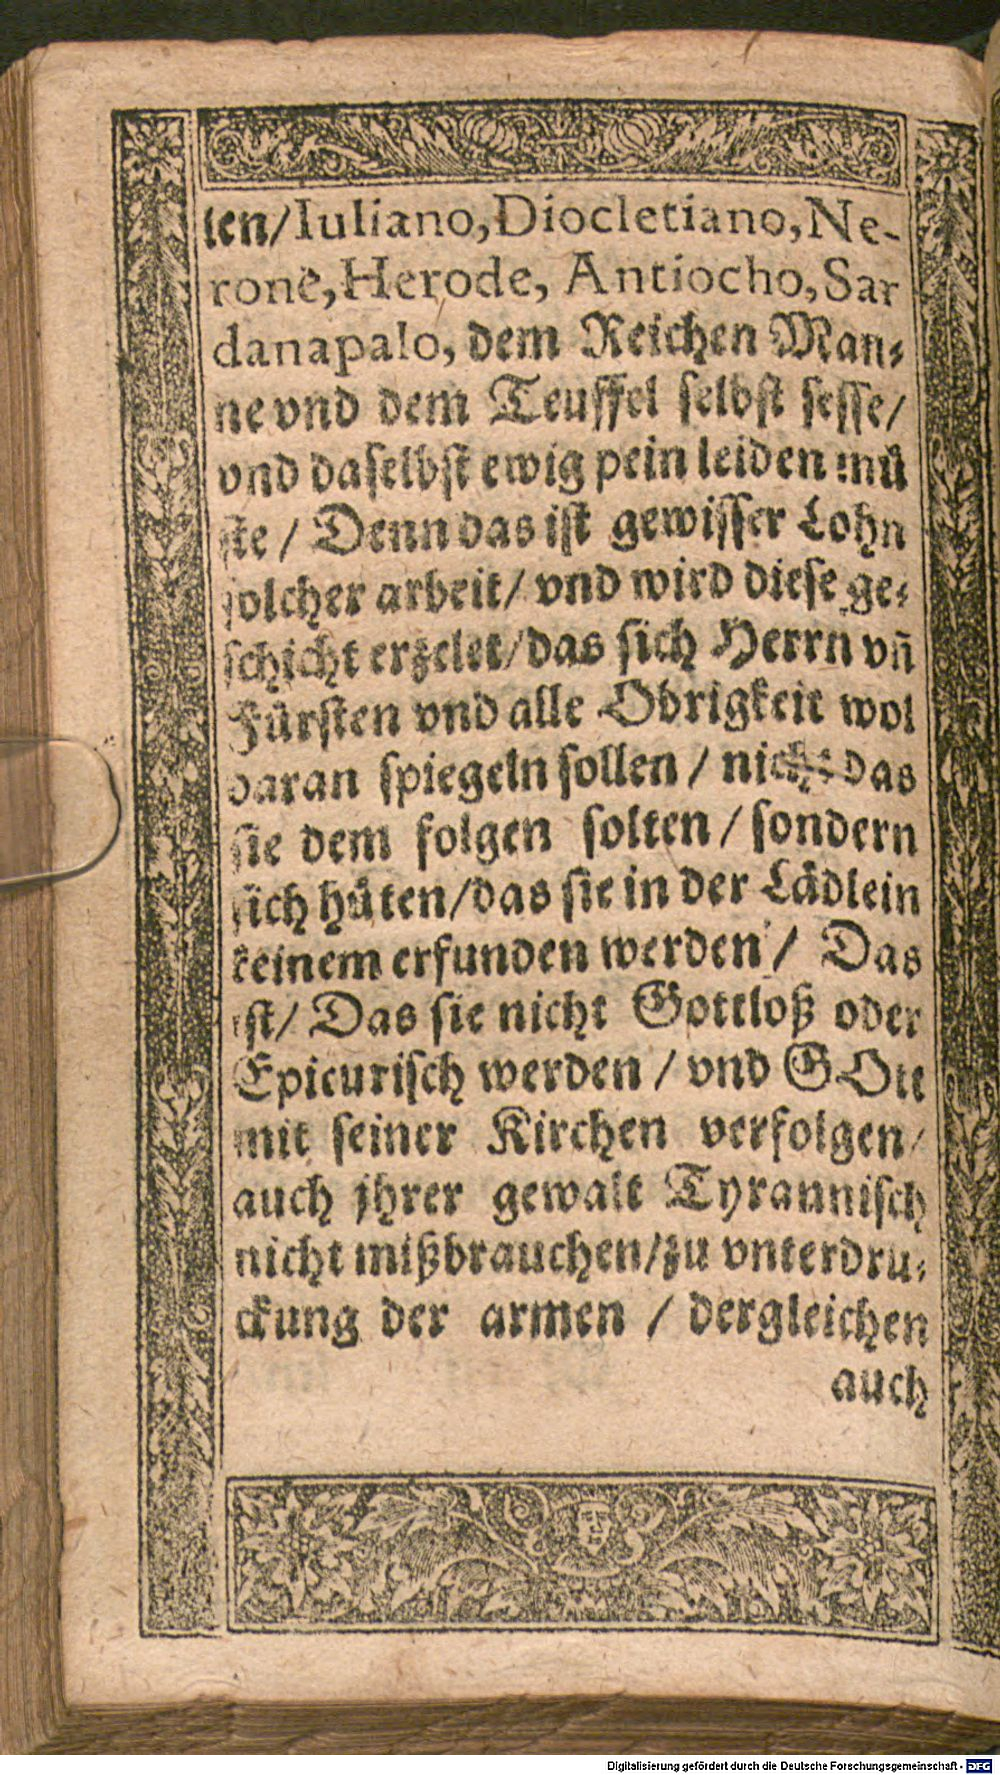 len/Iuliano, Diocletiano, Ne-
rone, Herode, Antiocho, Sar
danapalo, dem Reichen Man-
ne vnd dem Teuffel selbst sesse/
vnd daselbst ewig pein leiden muͤ
ste / Denn das ist gewisser Lohn
solcher arbeit/ vnd wird diese ge-
schicht erzelet/das sich Herrn vñ
Fuͤrsten vnd alle Obrigkeit wol
daran spiegeln sollen / nicht das
sie dem folgen solten / sondern
sich huͤten/das sie in der Laͤdlein
keinem erfunden werden / Das
ist/ Das sie nicht Gottloß oder
Epicurisch werden / vnd GOtt
mit seiner Kirchen verfolgen/
auch jhrer gewalt Tyrannisch
nicht mißbrauchen/zu vnterdru-
ckung der armen / dergleichen
auch
Digitalisierung gefördert durch die Deutsche Forschungsgemeinschaft - DFG